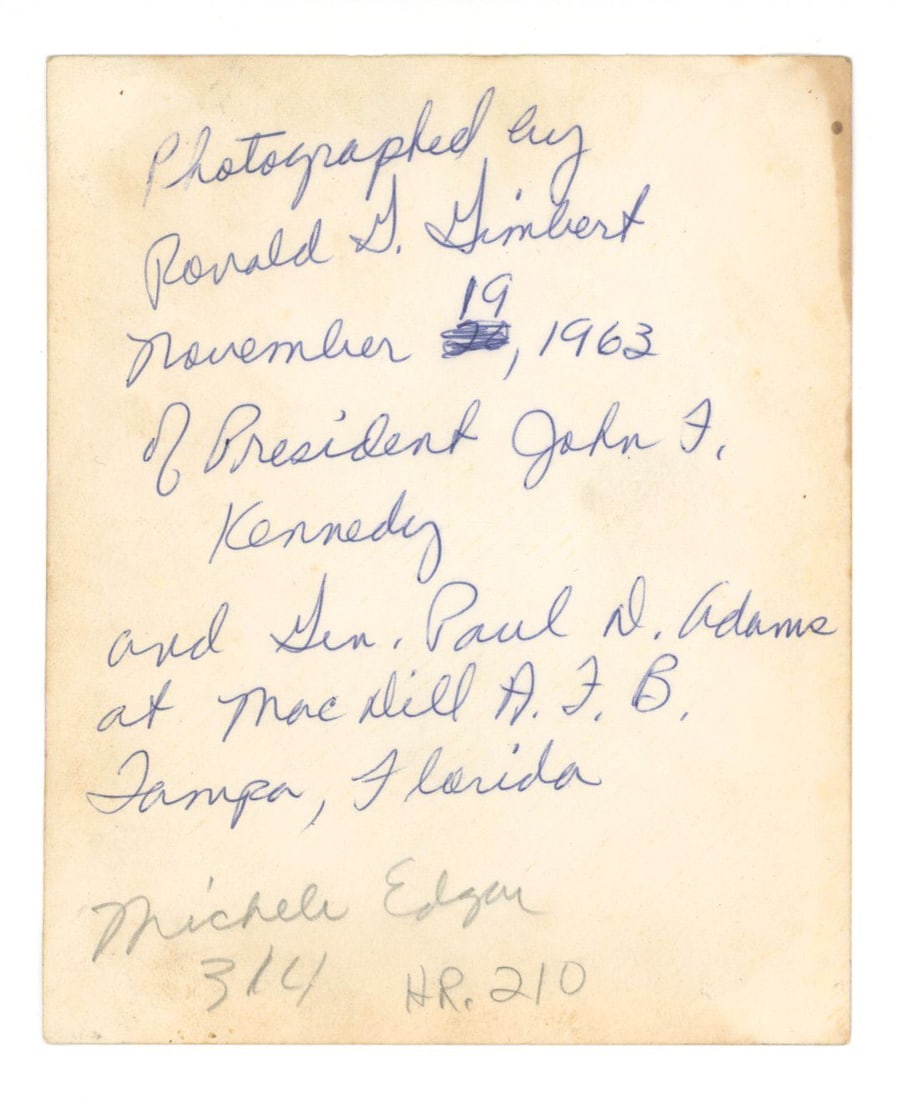 Photographed by
Ronald G. Gimbert
19
November , 1963
of President John F.
Kennedy
and Gen. Paul D. Adams
at MacDill A. F. B.
Tampa, Florida
Michele Edgar
314 HR. 210